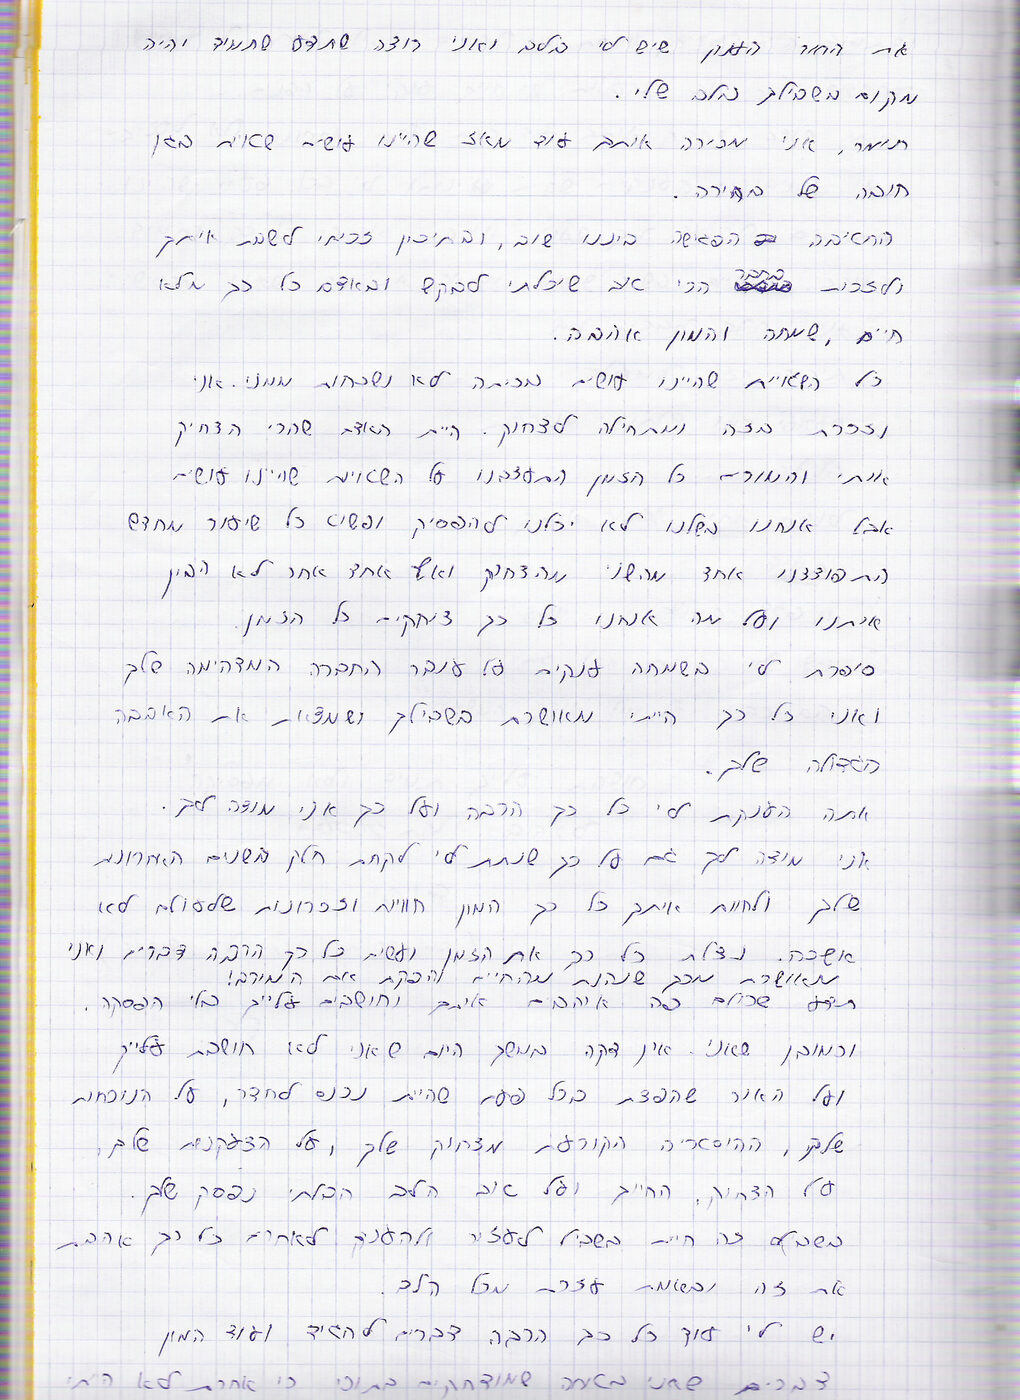 את החור הענק שיש לי בלב ואני רוצה שתדע שתמיד יהיה
מקום בשבילך בלב שלי.
תומר, אני מכירה אותך עוד מאז שהיינו עושים שטויות בגן
חובה של
התאיבה הפגישה ביננו שוב, ובתיכון זכיתי לשבת איתך
ולזכות בחבר הכי טוב שיכולתי לבקש ובאדם כל כך מלא
חיים, שמחה והמון אהבה.
כל השטויות שהיינו עושים בכיתה לא נשכחות ממני. אני
נזכרת בזה ומתחילה לצחוק. היית האדם שהכי הצחיק
אותי והמורים כל הזמן התעצבנו על השטויות שהיינו עושים
אבל אנחנו בשלנו לא יכלנו להפסיק ופשוט כל שיעור מחדש
התפוצצנו אחד מהשני מהצחוק ואף אחד אחר לא הבין
אותנו ועל מה אנחנו כל כך צוחקים כל הזמן.
סיפרת לי בשמחה ענקית על ענבר החברה המדהימה שלך
ואני כל כך הייתי מאושרת בשבילך ושמצאת את האהבה
הגדולה שלך.
אתה הענקת לי כל כך הרבה ועל כך אני מודה לך.
אני מודה לך גם על כך שנתת לי לקחת חלק משנים האחרונות
שלך ולחיות איתך כל כך המון חוויות וזכרונות שלעולם לא
אשכח. ניצלת כל כך את הזמן ועשית כל כך הרבה דברים ואני
מאושרת מכך שנהנת מהחיים והפקת את המירב!
תדע שכולם פה אוהבים אותך וחושבים עלייך בלי הפסקה.
וכמובן שאני. אין דקה במשך היום שאני לא חושבת עלייך
ועל האור שהפצת בכל פעם שהיית נכנס לחדר, על הנוכחות
שלך, ההיסטריה הקורעת מצחוק שלך, על הצעקנות שלך,
על הצחוק, החיוך ועל טוב הלב הבלתי נפסק שלך.
בשביל זה חיית בשביל לעזור ולהעניק לאחרים כל כך אהבת
את זה ובאמת עזרת מכל הלב.
יש לי עוד כל כך הרבה דברים להגיד ועוד המון
דברים שאני בטוחה שמודחקים בתוכי כי אחרת לא הייתי